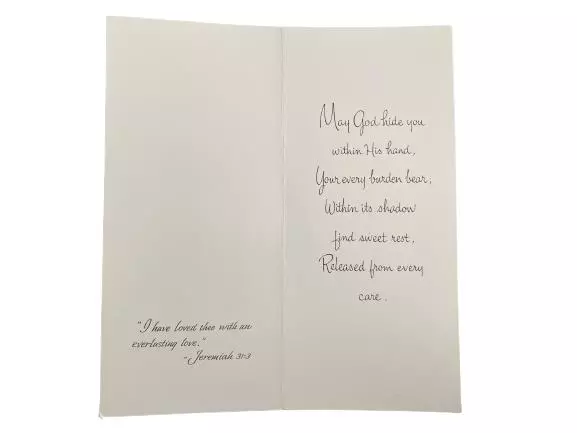 "I have loved thee with an
everlasting love."
-Jeremiah 31:3
May God hide you
within His hand,
Your every burden bear;
Within its shadow
find sweet rest,
Released from every
care.